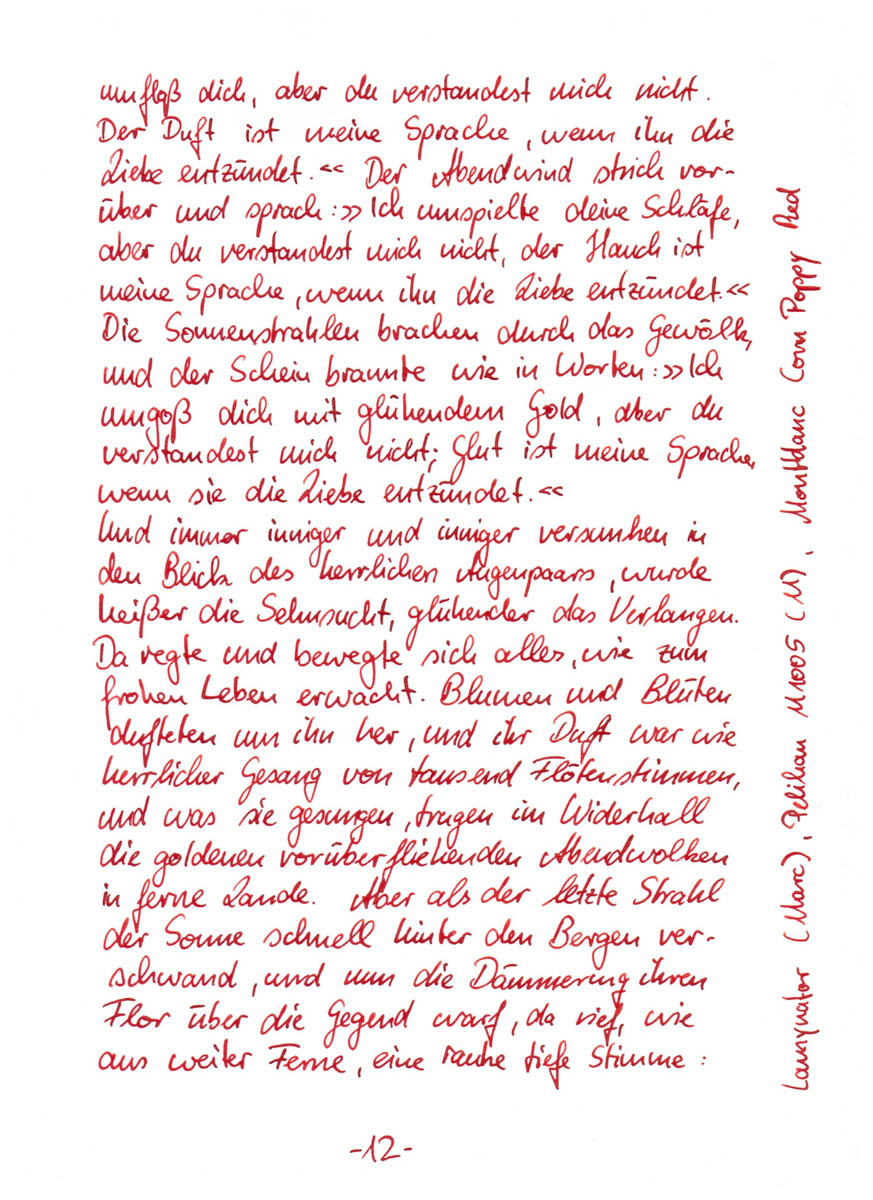 umfloß dich, aber du verstandest mich nicht.
Der Duft ist meine Sprache, wenn ihn die
Liebe entzündet.«« Der Abendwind strich vor-
über und sprach:»Ich umspielte deine Schläfe,
aber du verstandest mich nicht, der Hauch ist
meine Sprache, wenn ihn die Liebe entzündet.««
Die Sonnenstrahlen brachen durch das Gewölk,
und der Schein brannte wie in Worten:»Ich
umgoß dich mit glühendem Gold, aber du
verstandest mich nicht; Glut ist meine Sprache,
wenn sie die Liebe entzündet.««
Und immer inniger und inniger versunken in
den Blick des herrlichen Augenpaars, wurde
heißer die Sehnsucht, glühender das Verlangen.
Da regte und bewegte sich alles, wie zum
frohen Leben erwacht. Blumen und Blüten
dufteten um ihn her, und ihr Duft war wie
herrlicher Gesang von tausend Flötenstimmen,
und was sie gesungen, trugen im Widerhall
die goldenen vorüberfliehenden Abendwolken
in ferne Lande. Aber als der letzte Strahl
der Sonne schnell hinter den Bergen ver-
schwand, und nun die Dämmerung ihren
Flor über die Gegend warf, da rief, wie
aus weiter Ferne, eine rauhe tiefe Stimme:
-12-
Lamynator (Marc), Pelikan M1005 (M), Montblanc Corn Poppy Red